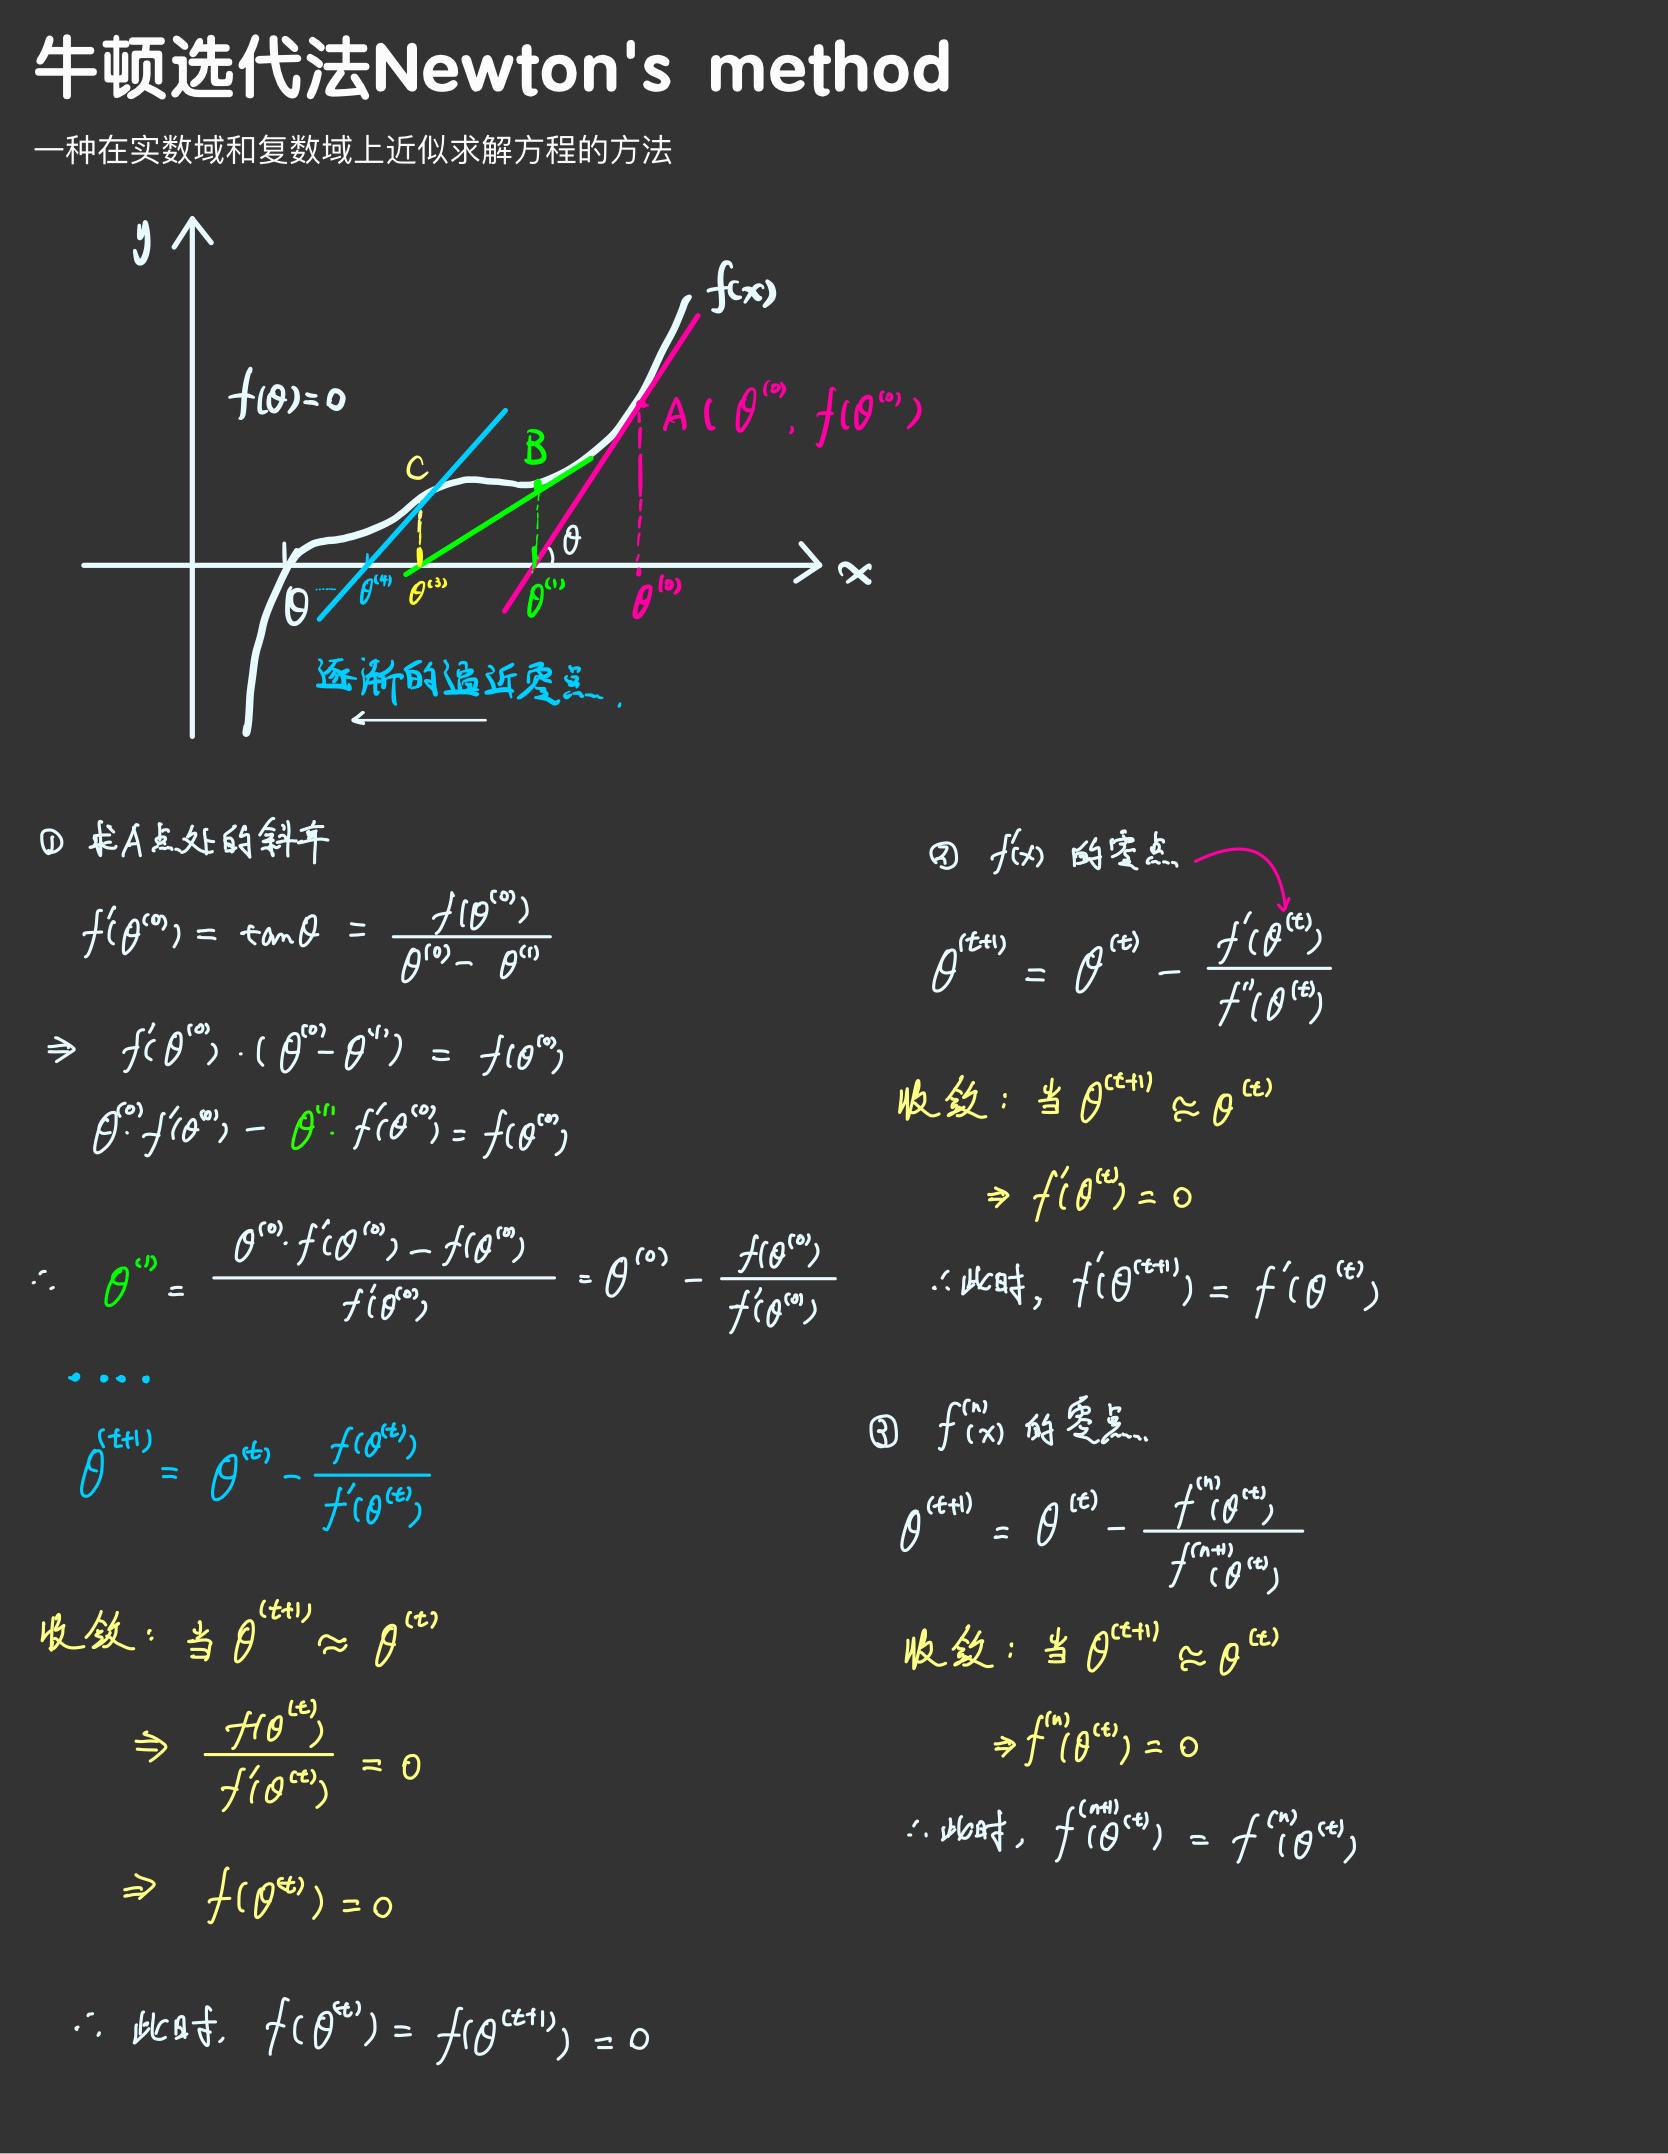 牛顿选代法Newton's method
一种在实数域和复数域上近似求解方程的方法
y
f(x)
f(θ)=0
A(θ⁽⁰⁾, f(θ⁽⁰⁾)
B
C
θ
x
θ ······ θ⁽⁴⁾ θ⁽³⁾ θ⁽¹⁾ θ⁽⁰⁾
逐渐的逼近零点.
① 求A点处的斜率
f'(θ⁽⁰⁾) = tanθ = f(θ⁽⁰⁾) / θ⁽⁰⁾ - θ⁽¹⁾
⇒ f'(θ⁽⁰⁾)·(θ⁽⁰⁾-θ⁽¹⁾) = f(θ⁽⁰⁾)
θ⁽⁰⁾·f'(θ⁽⁰⁾) - θ⁽¹⁾·f'(θ⁽⁰⁾) = f(θ⁽⁰⁾)
∴ θ⁽¹⁾ = θ⁽⁰⁾·f'(θ⁽⁰⁾) - f(θ⁽⁰⁾) / f'(θ⁽⁰⁾) = θ⁽⁰⁾ - f(θ⁽⁰⁾) / f'(θ⁽⁰⁾)
····
θ⁽ᵗ⁺¹⁾ = θ⁽ᵗ⁾ - f(θ⁽ᵗ⁾) / f'(θ⁽ᵗ⁾)
收敛: 当 θ⁽ᵗ⁺¹⁾ ≈ θ⁽ᵗ⁾
⇒ f(θ⁽ᵗ⁾) / f'(θ⁽ᵗ⁾) = 0
⇒ f(θ⁽ᵗ⁾) = 0
∴ 此时, f(θ⁽ᵗ⁾) = f(θ⁽ᵗ⁺¹⁾) = 0
② f'(x) 的零点
θ⁽ᵗ⁺¹⁾ = θ⁽ᵗ⁾ - f'(θ⁽ᵗ⁾) / f''(θ⁽ᵗ⁾)
收敛: 当 θ⁽ᵗ⁺¹⁾ ≈ θ⁽ᵗ⁾
⇒ f'(θ⁽ᵗ⁾) = 0
∴此时, f'(θ⁽ᵗ⁺¹⁾) = f'(θ⁽ᵗ⁾)
③ f⁽ⁿ⁾(x) 的零点
θ⁽ᵗ⁺¹⁾ = θ⁽ᵗ⁾ - f⁽ⁿ⁾(θ⁽ᵗ⁾) / f⁽ⁿ⁺¹⁾(θ⁽ᵗ⁾)
收敛: 当 θ⁽ᵗ⁺¹⁾ ≈ θ⁽ᵗ⁾
⇒ f⁽ⁿ⁾(θ⁽ᵗ⁾) = 0
∴ 此时, f⁽ⁿ⁺¹⁾(θ⁽ᵗ⁾) = f⁽ⁿ⁾(θ⁽ᵗ⁾)